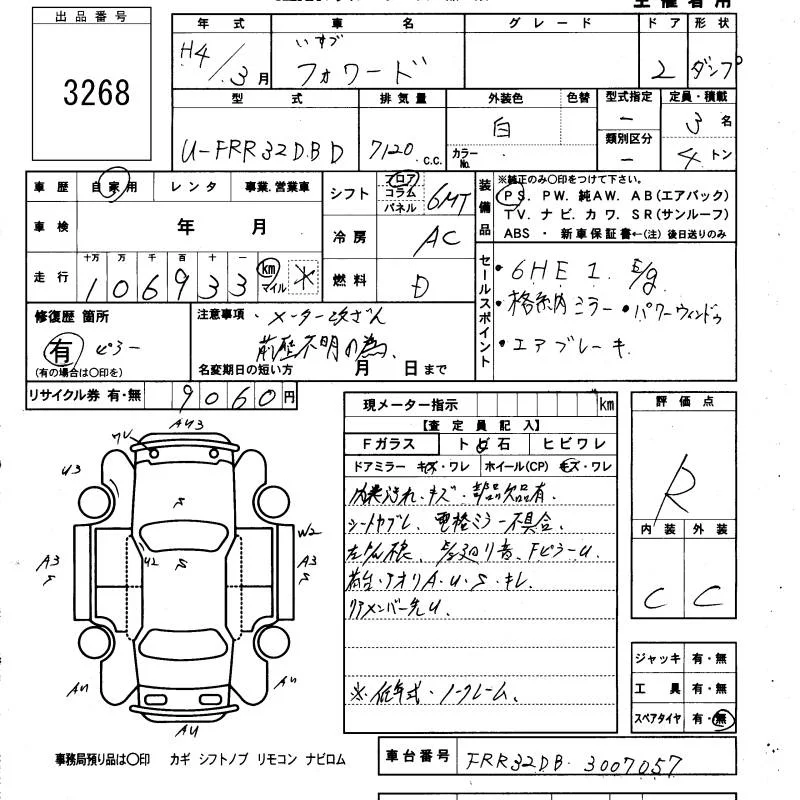 出品番号
3268
年式
H4/3月
車名
いすゞ
フォワード
グレード
ドア
2
形状
ダンプ
型式
U-FRR32DBD
排気量
7120 c.c.
外装色
白
色替
カラーNo.
型式指定
－
類別区分
－
定員・積載
3名
4トン
車歴 自家用 レンタ 事業.営業車
車検 年 月
走行 十万 万 千 百 十 一
106933 km マイル ※
シフト フロア コラム パネル 6MT
冷房 AC
燃料 D
装備品
※純正のみ〇印をつけて下さい。
PS. PW. 純AW. AB(エアバック)
TV. ナビ. カワ. SR(サンルーフ)
ABS ・ 新車保証書←(注) 後日送りのみ
セールスポイント
・6HE1 E/g
・格納ミラー ・パワーウィンドゥ
・エアブレーキ
修復歴 箇所
有 ピラー
(有の場合は〇印を)
注意事項・メーター改ざん
前歴不明の為、
名変期日の短い方 月 日まで
リサイクル券 有・無 9060円
現メーター指示 km
【査定員記入】
Fガラス トビ石 ヒビワレ
ドアミラー キズ・ワレ ホイール(CP) キズ・ワレ
内装汚れ・キズ・部品欠品有、
シートヤブレ、電格ミラー不具合、
Fピラーu.
荷台・アオリA・u・S・キレ
リアメンバー先u.
※.低年式・ノークレーム、
評価点
R
内装 外装
C C
ジャッキ 有・無
工具 有・無
スペアタイヤ 有・無
AU3
U3
S
W2
A3
S
U2
S
A3
S
AU
AU
AU
事務局預り品は〇印 カギ シフトノブ リモコン ナビロム
車台番号 FRR32DB-3007057